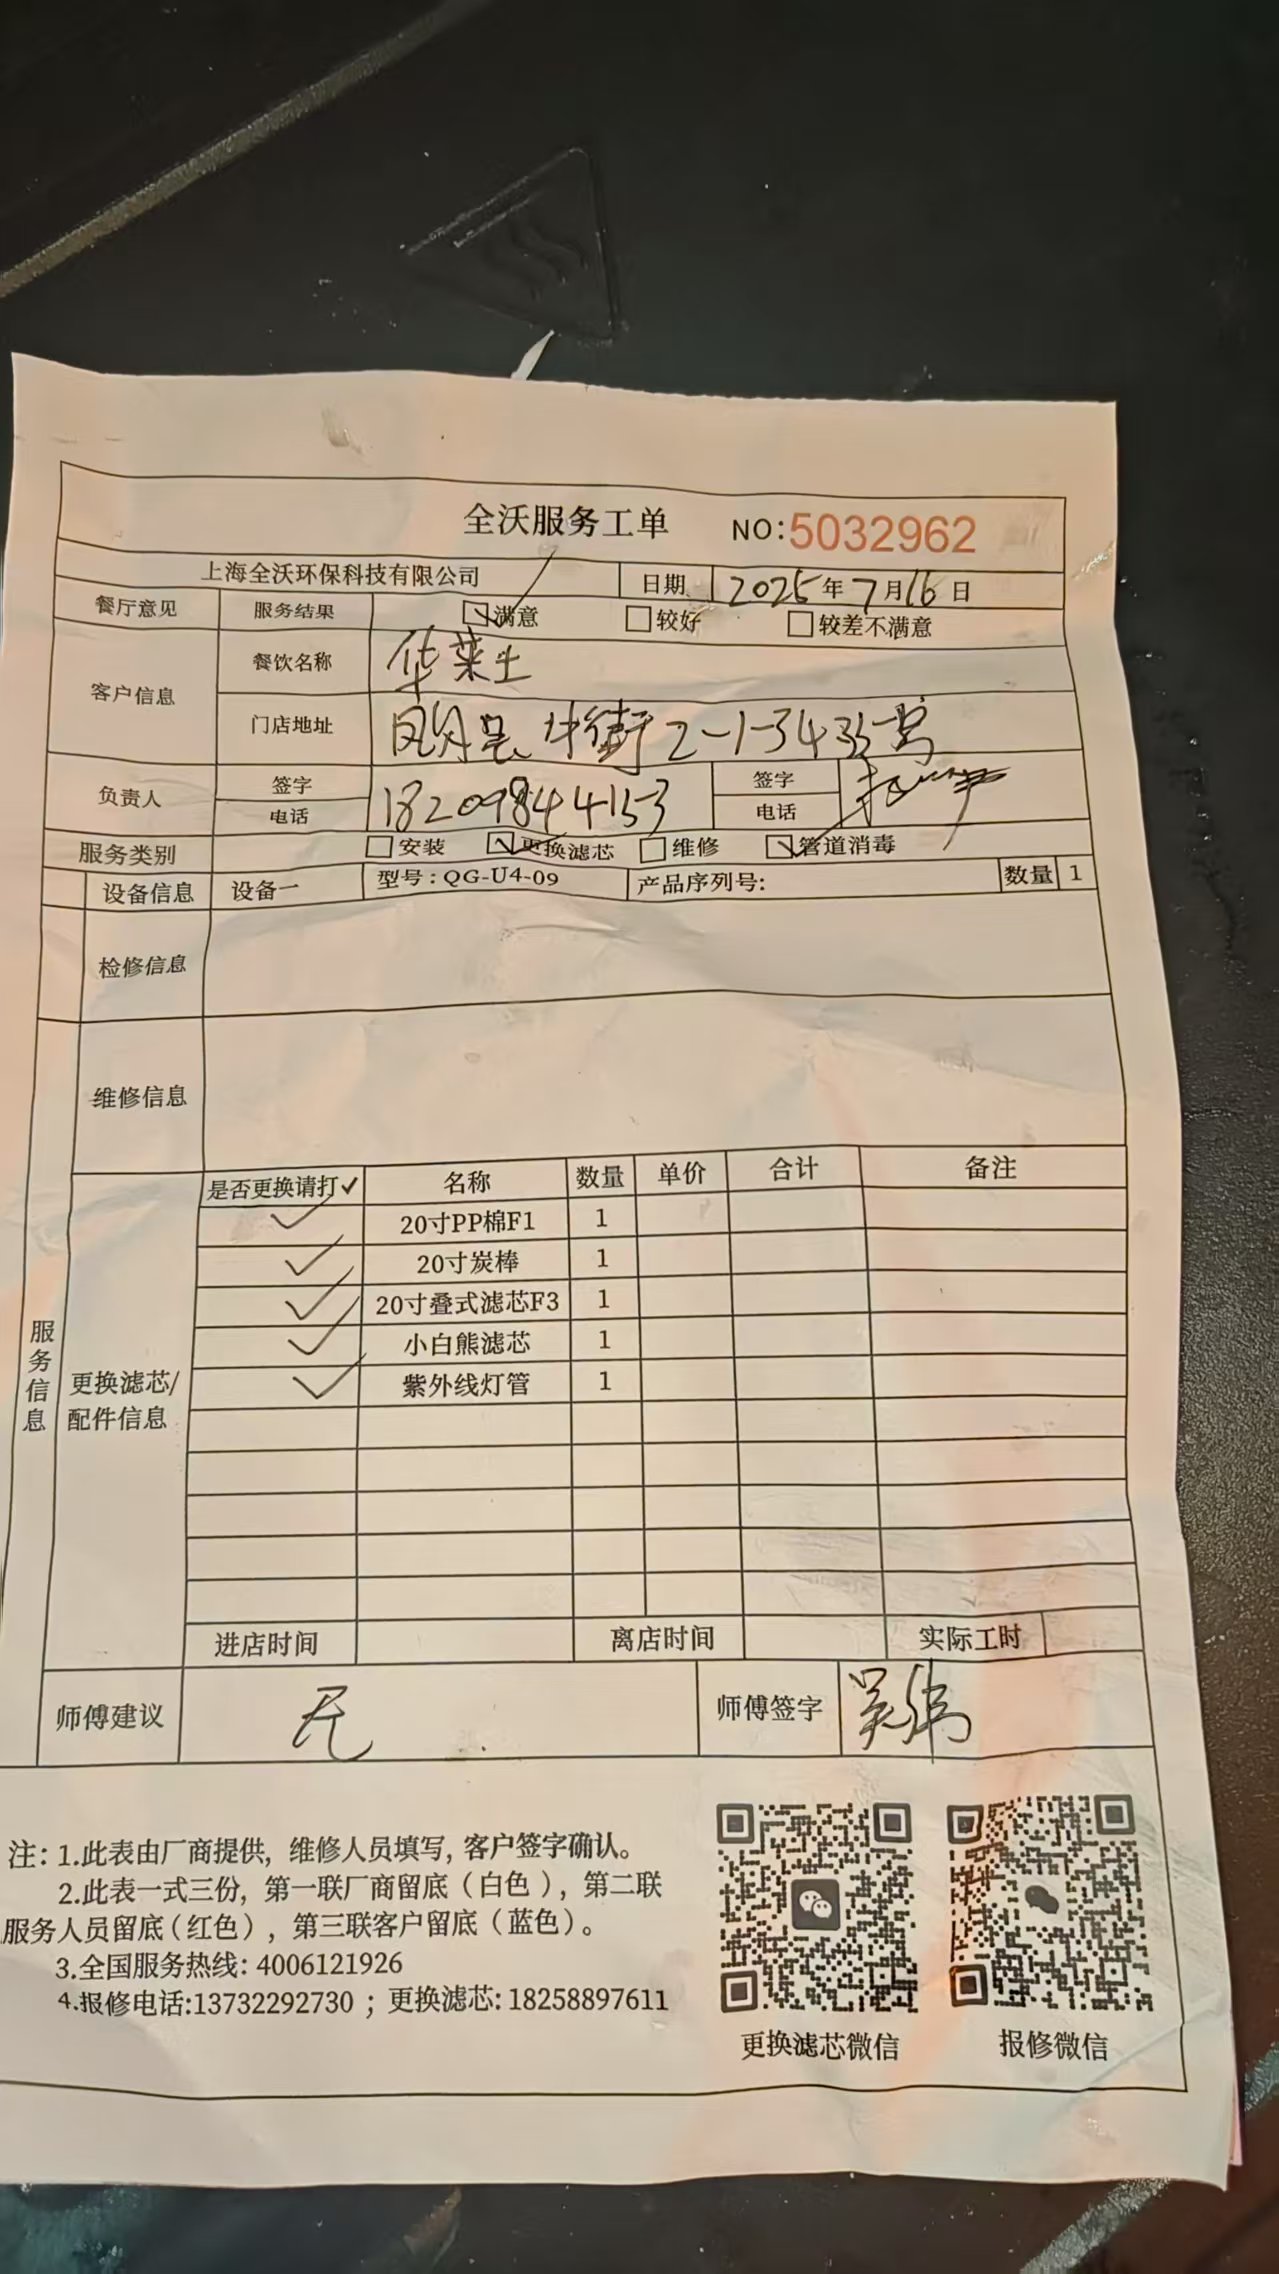 全沃服务工单 NO:5032962
上海全沃环保科技有限公司 日期 2025年7月16日
餐厅意见 服务结果 满意 较好 较差不满意
客户信息 餐饮名称 华莱士
门店地址 2-1-3435号
负责人 签字 签字
电话 18209844153 电话
服务类别 安装 更换滤芯 维修 管道消毒
设备信息 设备一 型号:QG-U4-09 产品序列号: 数量 1
检修信息
维修信息
服务信息
更换滤芯/配件信息
是否更换请打✓ 名称 数量 单价 合计 备注
✓ 20寸PP棉F1 1
✓ 20寸炭棒 1
✓ 20寸叠式滤芯F3 1
✓ 小白熊滤芯 1
✓ 紫外线灯管 1
进店时间 离店时间 实际工时
师傅建议 无 师傅签字 吴伟
注: 1.此表由厂商提供, 维修人员填写, 客户签字确认。
2.此表一式三份, 第一联厂商留底(白色), 第二联
服务人员留底(红色), 第三联客户留底(蓝色)。
3.全国服务热线: 4006121926
4.报修电话:13732292730 ; 更换滤芯: 18258897611
更换滤芯微信 报修微信